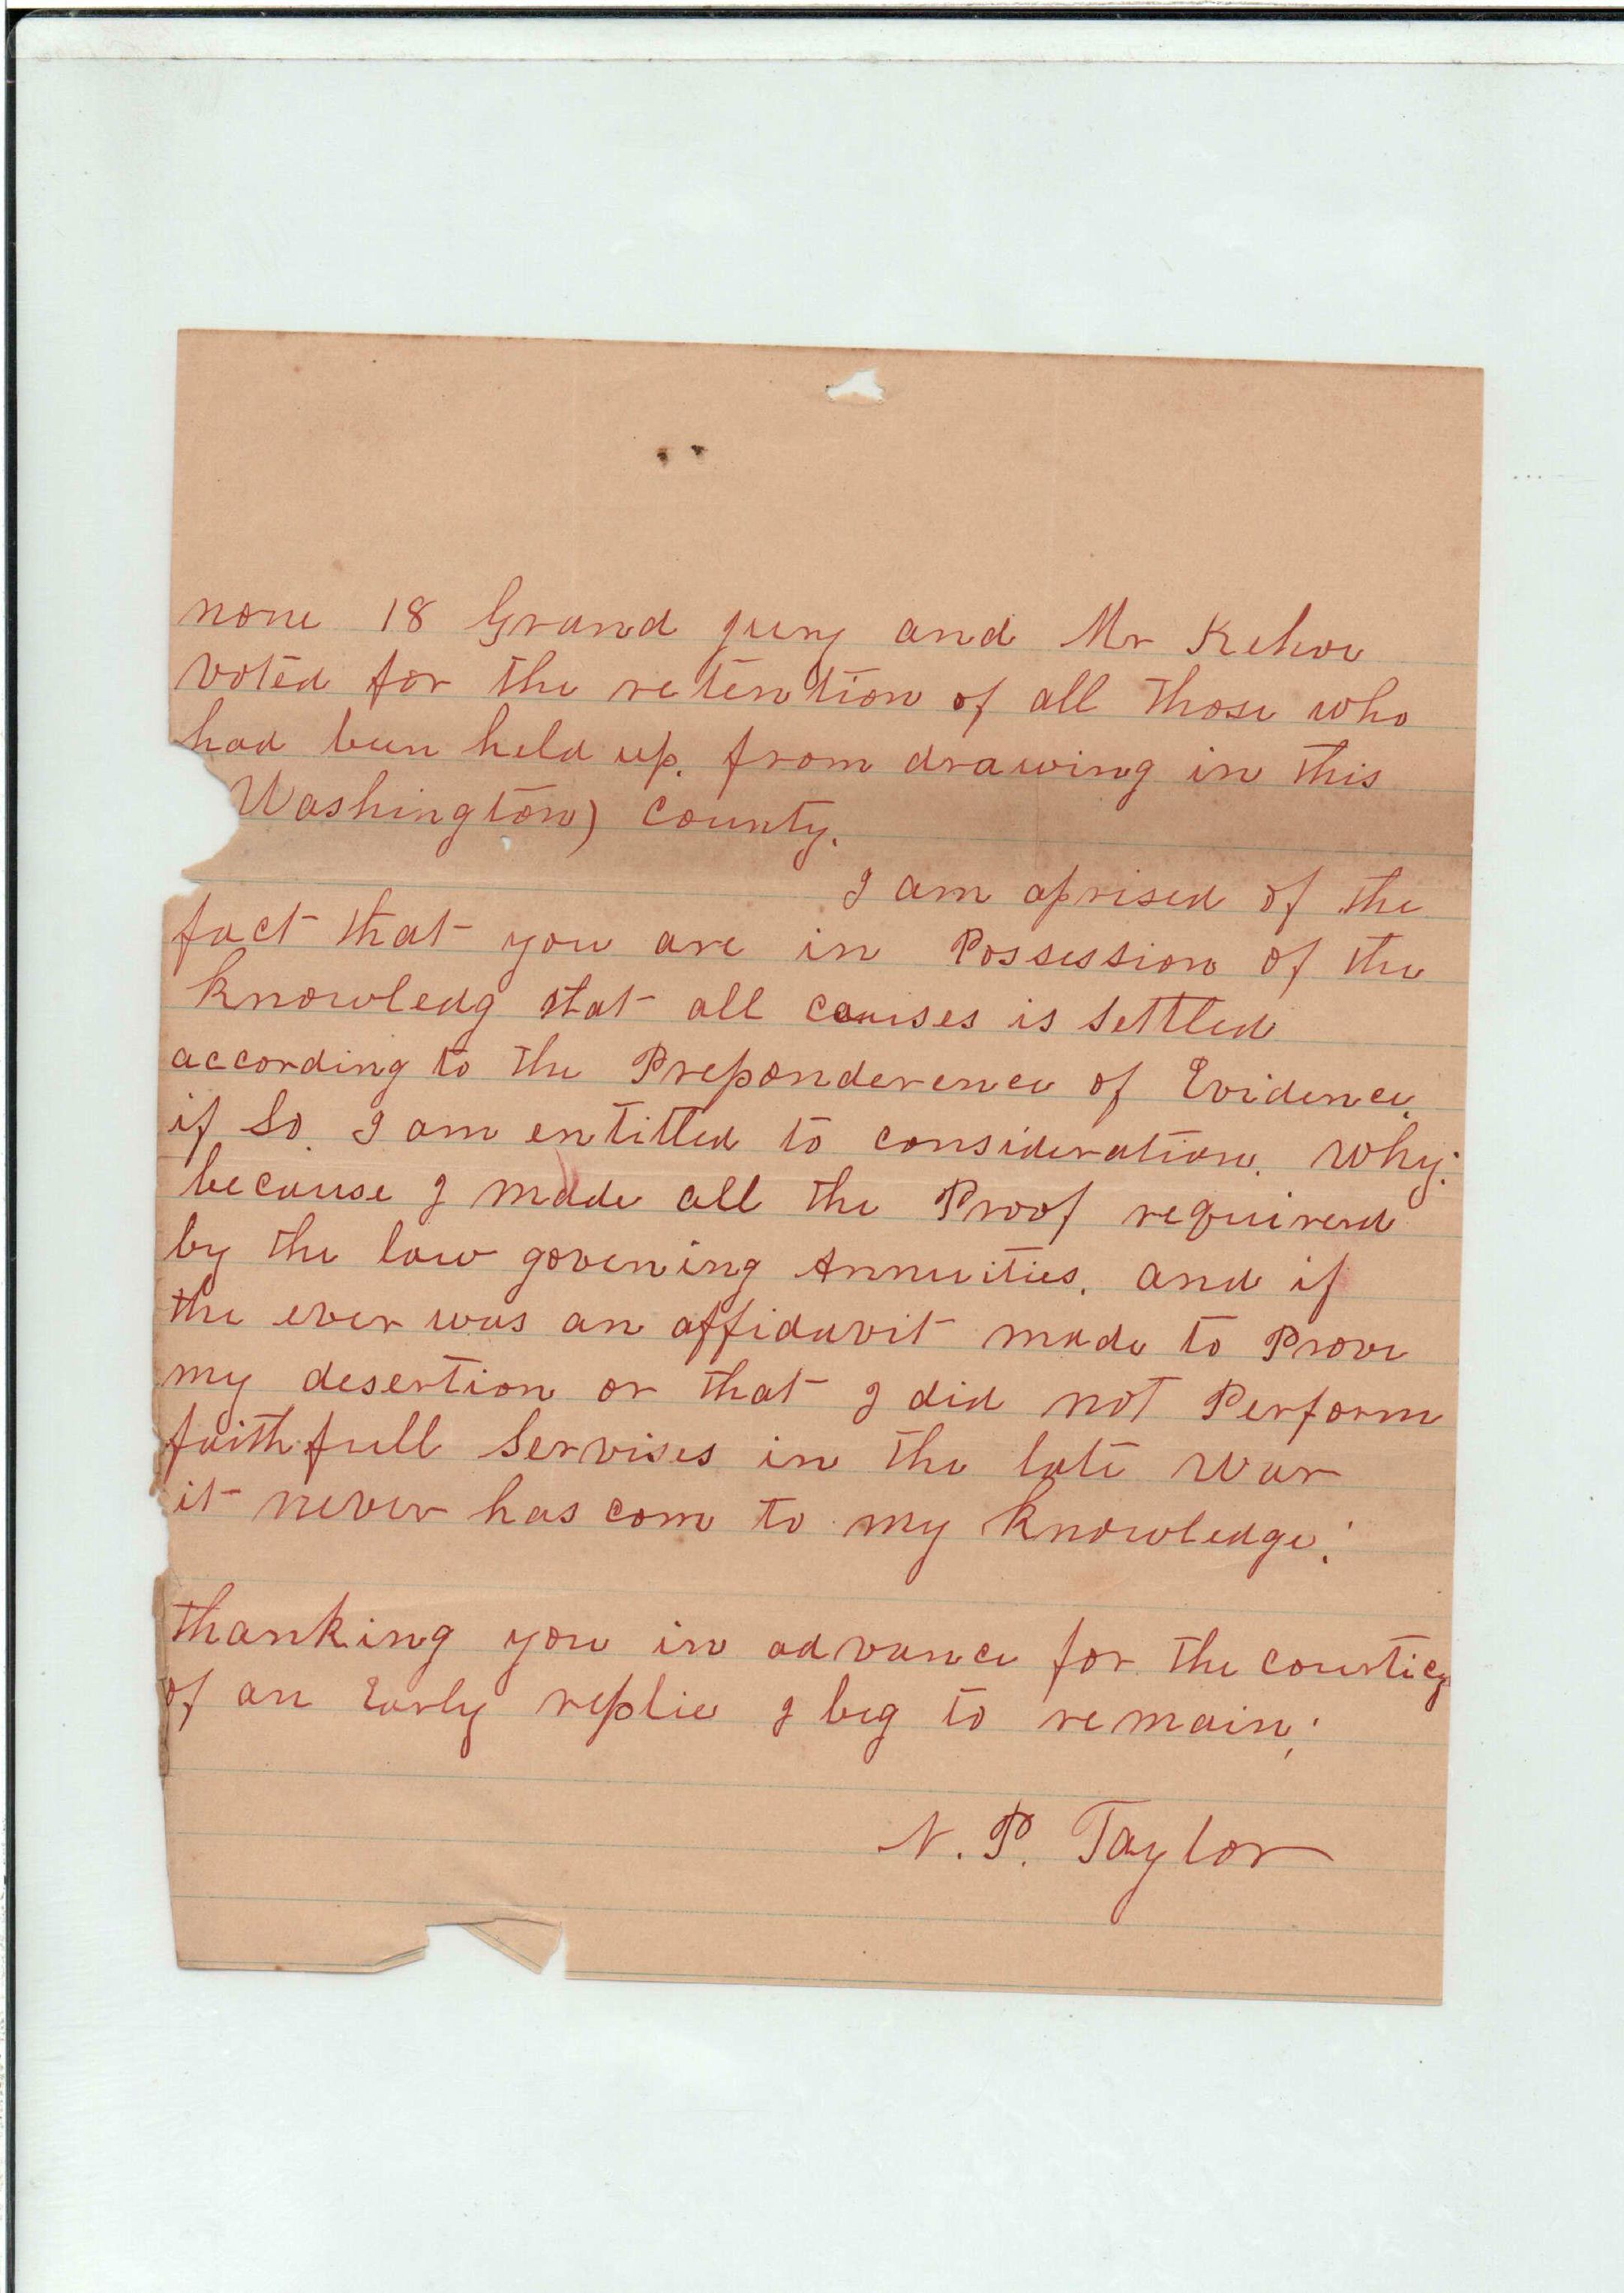 none 18 Grand jury and Mr Kehoe
voted for the retention of all those who
had been held up. from drawing in this
Washington) county.
I am aprised of the
fact that you are in Possession of the
knowledg that all causes is settled
according to the Preponderence of Evidence
if So. I am entitled to consideration. Why:
because I made all the Proof requirerd
by the law govening Annuities. and if
the ever was an affidavit made to Prove
my desertion or that I did not Perform
faithfull Servises in the late war
it never has com to my knowledge.
thanking you in advance for the courticy
of an Early replie I beg to remain;
N. P. Taylor